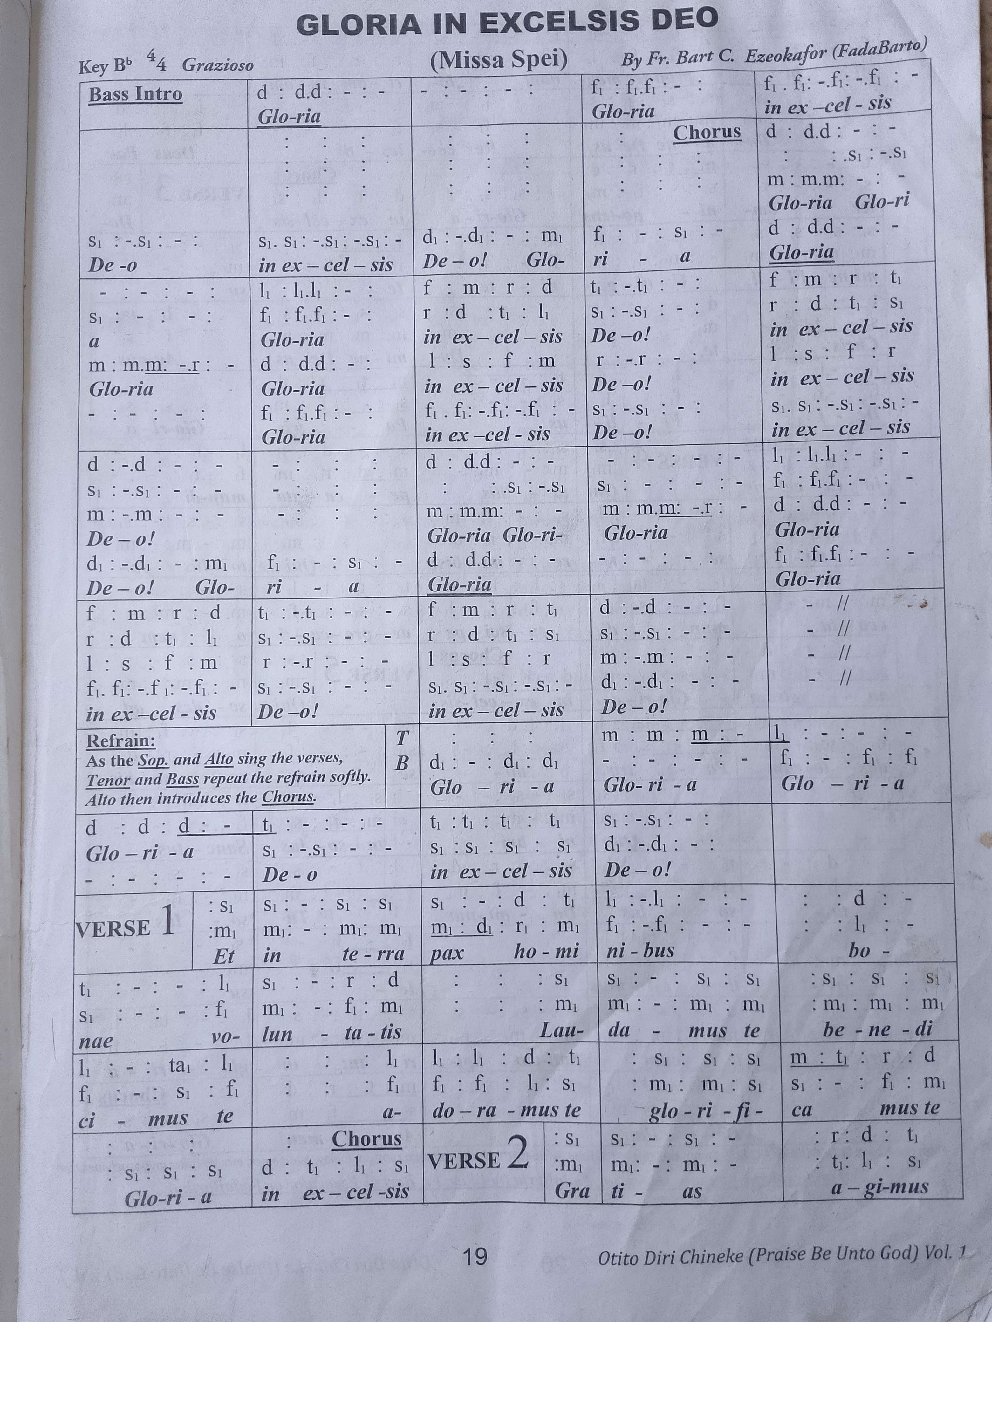 GLORIA IN EXCELSIS DEO
Key Bᵇ 4/4 Grazioso (Missa Spei) By Fr. Bart C. Ezeokafor (FadaBarto)
Bass Intro d : d.d : - : - - : - : - : - f₁ : f₁.f₁ : - : f₁ . f₁: -.f₁: -.f₁ : -
Glo-ria Glo-ria in ex –cel - sis
: : : : : : : Chorus d : d.d : - : -
: : : : : : : : : : : .s₁ : -.s₁
: : : : : : : : : m : m.m: - : -
Glo-ria Glo-ri
s₁ : -.s₁ : - : s₁. s₁ : -.s₁ : -.s₁ : - d₁ : -.d₁ : - : m₁ f₁ : - : s₁ : - d : d.d : - : -
De -o in ex – cel – sis De – o! Glo- ri - a Glo-ria
- : - : - : l₁ : l₁.l₁ : - : f : m : r : d t₁ : -.t₁ : - : f : m : r : t₁
s₁ : - : - : f₁ : f₁.f₁ : - : r : d : t₁ : l₁ s₁ : -.s₁ : - : r : d : t₁ : s₁
a Glo-ria in ex – cel – sis De –o! in ex – cel – sis
m : m.m: -.r : - d : d.d : - : l : s : f : m r : -.r : - : l : s : f : r
Glo-ria Glo-ria in ex – cel – sis De –o! in ex – cel – sis
- : - : - : f₁ : f₁.f₁ : - : f₁ . f₁: -.f₁: -.f₁ : - s₁ : -.s₁ : - : s₁. s₁ : -.s₁ : -.s₁ : -
Glo-ria in ex –cel - sis De –o! in ex – cel – sis
d : -.d : - : - - : : : d : d.d : - : - - : - : - : - l₁ : l₁.l₁ : - : -
s₁ : -.s₁ : - : - - : : : : : .s₁ : -.s₁ s₁ : - : - : - f₁ : f₁.f₁ : - : -
m : -.m : - : - - : : : m : m.m: - : - m : m.m: -.r : - d : d.d : - : -
De – o! Glo-ria Glo-ri- Glo-ria Glo-ria
d₁ : -.d₁ : - : m₁ f₁ : - : s₁ : - d : d.d: - : - - : - : - : f₁ : f₁.f₁ : - : -
De – o! Glo- ri - a Glo-ria Glo-ria
f : m : r : d t₁ : -.t₁ : - : - f : m : r : t₁ d : -.d : - : - - //
r : d : t₁ : l₁ s₁ : -.s₁ : - : - r : d : t₁ : s₁ s₁ : -.s₁ : - : - - //
l : s : f : m r : -.r : - : - l : s : f : r m : -.m : - : - - //
f₁. f₁: -.f ₁: -.f₁ : - s₁ : -.s₁ : - : - s₁. s₁ : -.s₁ : -.s₁ : - d₁ : -.d₁ : - : - - //
in ex –cel - sis De –o! in ex – cel – sis De – o!
Refrain: T : : : m : m : m : - l₁ : - : - : -
As the Sop. and Alto sing the verses, B d₁ : - : d₁ : d₁ - : - : - : - f₁ : - : f₁ : f₁
Tenor and Bass repeat the refrain softly. Glo – ri - a Glo- ri - a Glo – ri - a
Alto then introduces the Chorus.
d : d : d : - t₁ : - : - : - t₁ : t₁ : t₁ : t₁ s₁ : -.s₁ : - :
Glo – ri - a s₁ : -.s₁ : - : - s₁ : s₁ : s₁ : s₁ d₁ : -.d₁ : - :
- : - : - : - De - o in ex – cel – sis De – o!
VERSE 1 : s₁ s₁ : - : s₁ : s₁ s₁ : - : d : t₁ l₁ : -.l₁ : - : - : : d : -
:m₁ m₁: - : m₁: m₁ m₁ : d₁ : r₁ : m₁ f₁ : -.f₁ : - : - : : l₁ : -
Et in te - rra pax ho - mi ni - bus bo -
t₁ : - : - : l₁ s₁ : - : r : d : : : s₁ s₁ : - : s₁ : s₁ : s₁ : s₁ : s₁
s₁ : - : - : f₁ m₁ : - : f₁ : m₁ : : : m₁ m₁ : - : m₁ : m₁ : m₁ : m₁ : m₁
nae vo- lun - ta - tis Lau- da - mus te be - ne - di
l₁ : - : ta₁ : l₁ : : : l₁ l₁ : l₁ : d : t₁ : s₁ : s₁ : s₁ m : t₁ : r : d
f₁ : - : s₁ : f₁ : : : f₁ f₁ : f₁ : l₁ : s₁ : m₁ : m₁ : s₁ s₁ : - : f₁ : m₁
ci - mus te a- do – ra - mus te glo - ri - fi - ca mus te
: : : : Chorus VERSE 2 : s₁ s₁ : - : s₁ : - : r : d : t₁
: s₁ : s₁ : s₁ d : t₁ : l₁ : s₁ :m₁ m₁: - : m₁ : - : t₁: l₁ : s₁
Glo-ri - a in ex – cel -sis Gra ti - as a – gi-mus
19 Otito Diri Chineke (Praise Be Unto God) Vol. 1